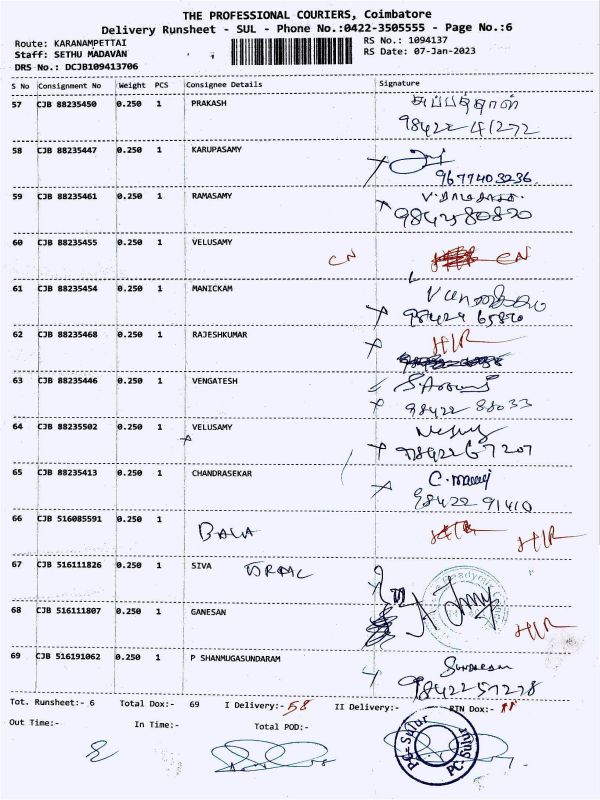 THE PROFESSIONAL COURIERS, Coimbatore
Delivery Runsheet - SUL - Phone No.:0422-3505555 - Page No.:6
Route: KARANAMPETTAI
Staff: SETHU MADAVAN
DRS No.: DCJB109413706
RS No.: 1094137
RS Date: 07-Jan-2023
S No Consignment No Weight PCS Consignee Details Signature
57 CJB 88235450 0.250 1 PRAKASH சுப்பத்தாள்
98422 41272
58 CJB 88235447 0.250 1 KARUPASAMY
9677403236
59 CJB 88235461 0.250 1 RAMASAMY
9842580820
60 CJB 88235455 0.250 1 VELUSAMY
CN CN
61 CJB 88235454 0.250 1 MANICKAM
98424 65820
62 CJB 88235468 0.250 1 RAJESHKUMAR HIR
63 CJB 88235446 0.250 1 VENGATESH
98422 88033
64 CJB 88235502 0.250 1 VELUSAMY
98422 67207
65 CJB 88235413 0.250 1 CHANDRASEKAR
98422 91410
66 CJB 516085591 0.250 1 BALA
HIR
67 CJB 516111826 0.250 1 SIVA
68 CJB 516111807 0.250 1 GANESAN
HIR
69 CJB 516191062 0.250 1 P SHANMUGASUNDARAM Sundaram
9842257278
Tot. Runsheet:- 6 Total Dox:- 69 I Delivery:- 58 II Delivery:- RTN Dox:- 11
Out Time:- In Time:- Total POD:-
PC-Sulur
PC-Sulur